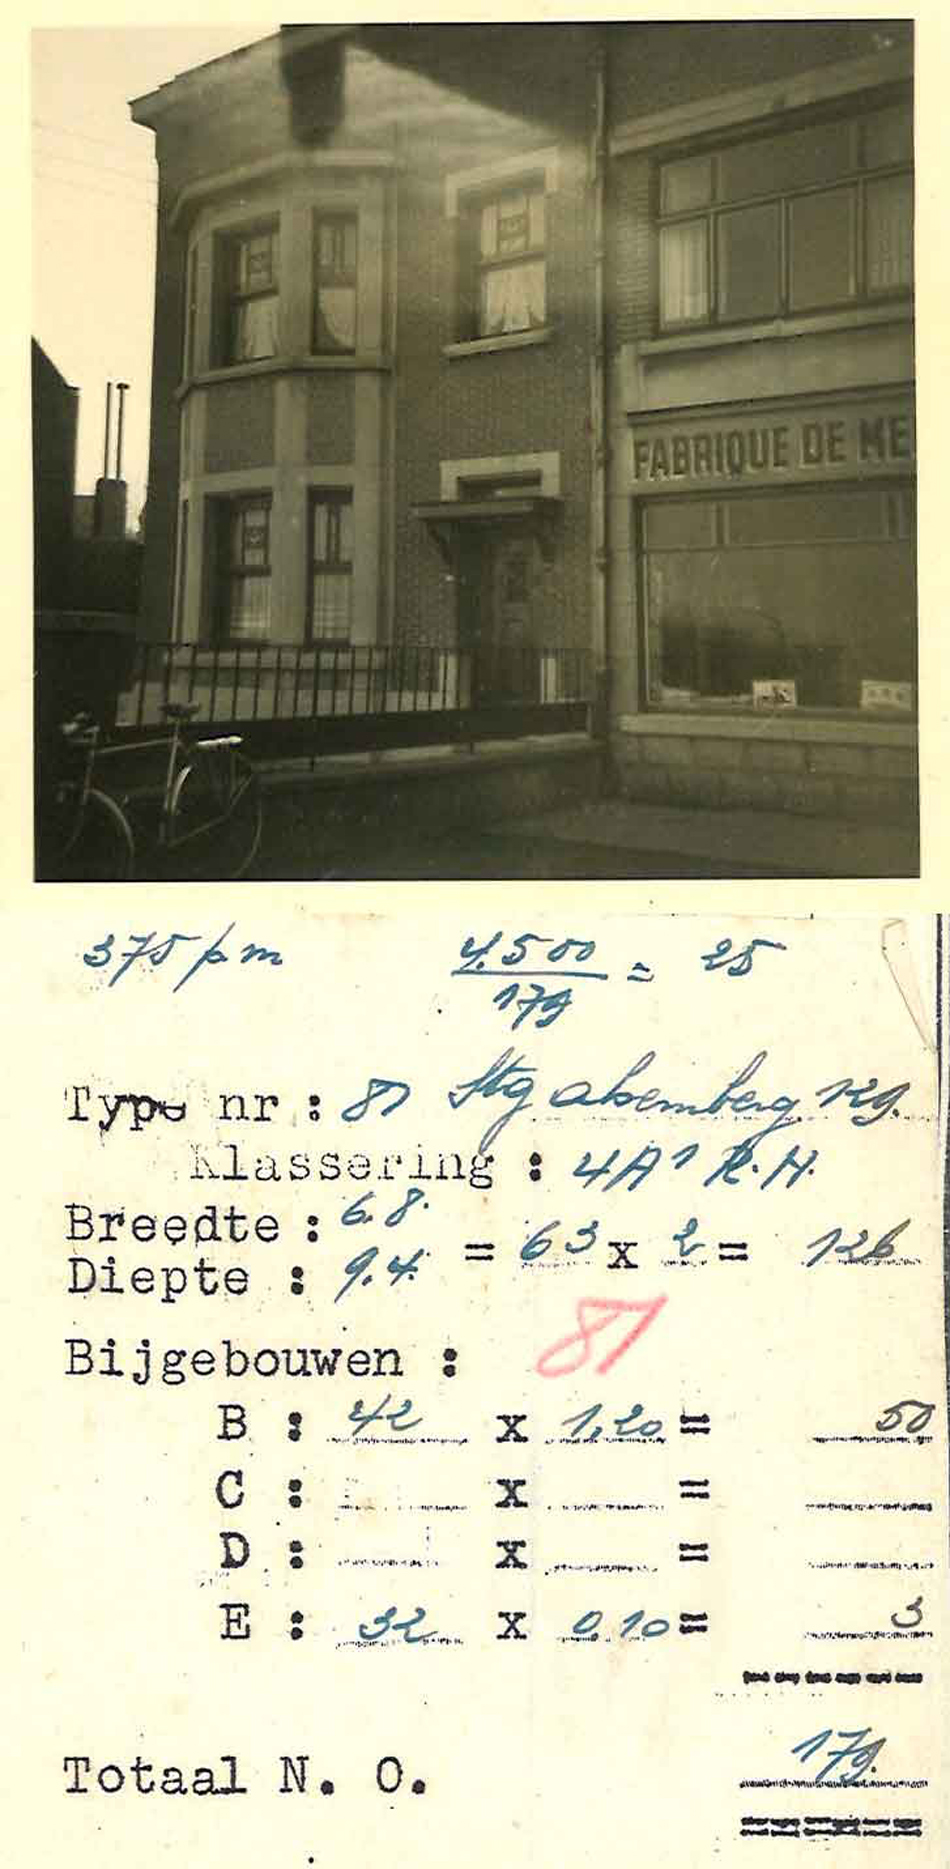 FABRIQUE DE ME
375 pm 4.500 / 179 = 25
Type nr : 81 Stg 129.
Klassering : 4A1 R.H.
Breedte : 6.8.
= 63 x 2 = 126
Diepte : 9.4.
Bijgebouwen : 81
B : 42 x 1.20 = 50
C : x =
D : x =
E : 32 x 0.10 = 3
Totaal N. O. 179.